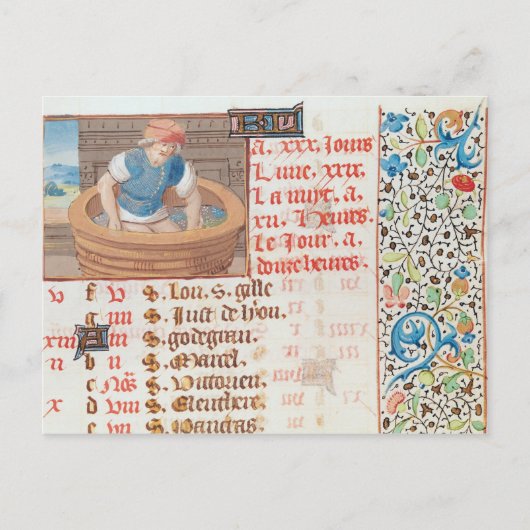 KL
a. xxx. Jours
Lune. xxix.
La nuyt. a
xii. Heures.
Le Jour. a
douze heures.
v f v S. Lou. S. gille
g iiii S. Just de lyon.
xiii A iii S. godegran.
b ii S. Marcel.
c Noˉs S. Victorien.
x d viii S. Eleuthere.
e vii S.